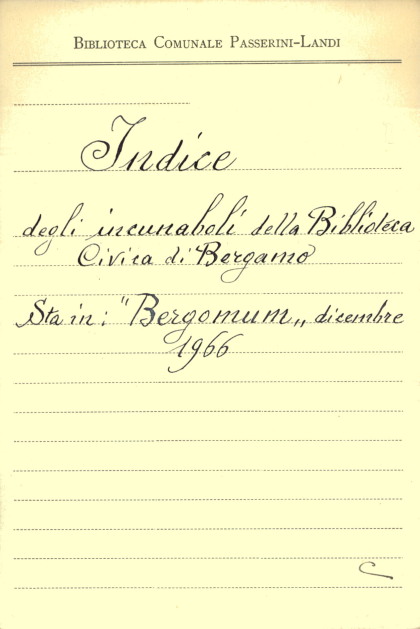 BIBLIOTECA COMUNALE PASSERINI-LANDI
Indice
degli incunaboli della Biblioteca
Civica di Bergamo
Sta in: "Bergomum„ dicembre
1966
C